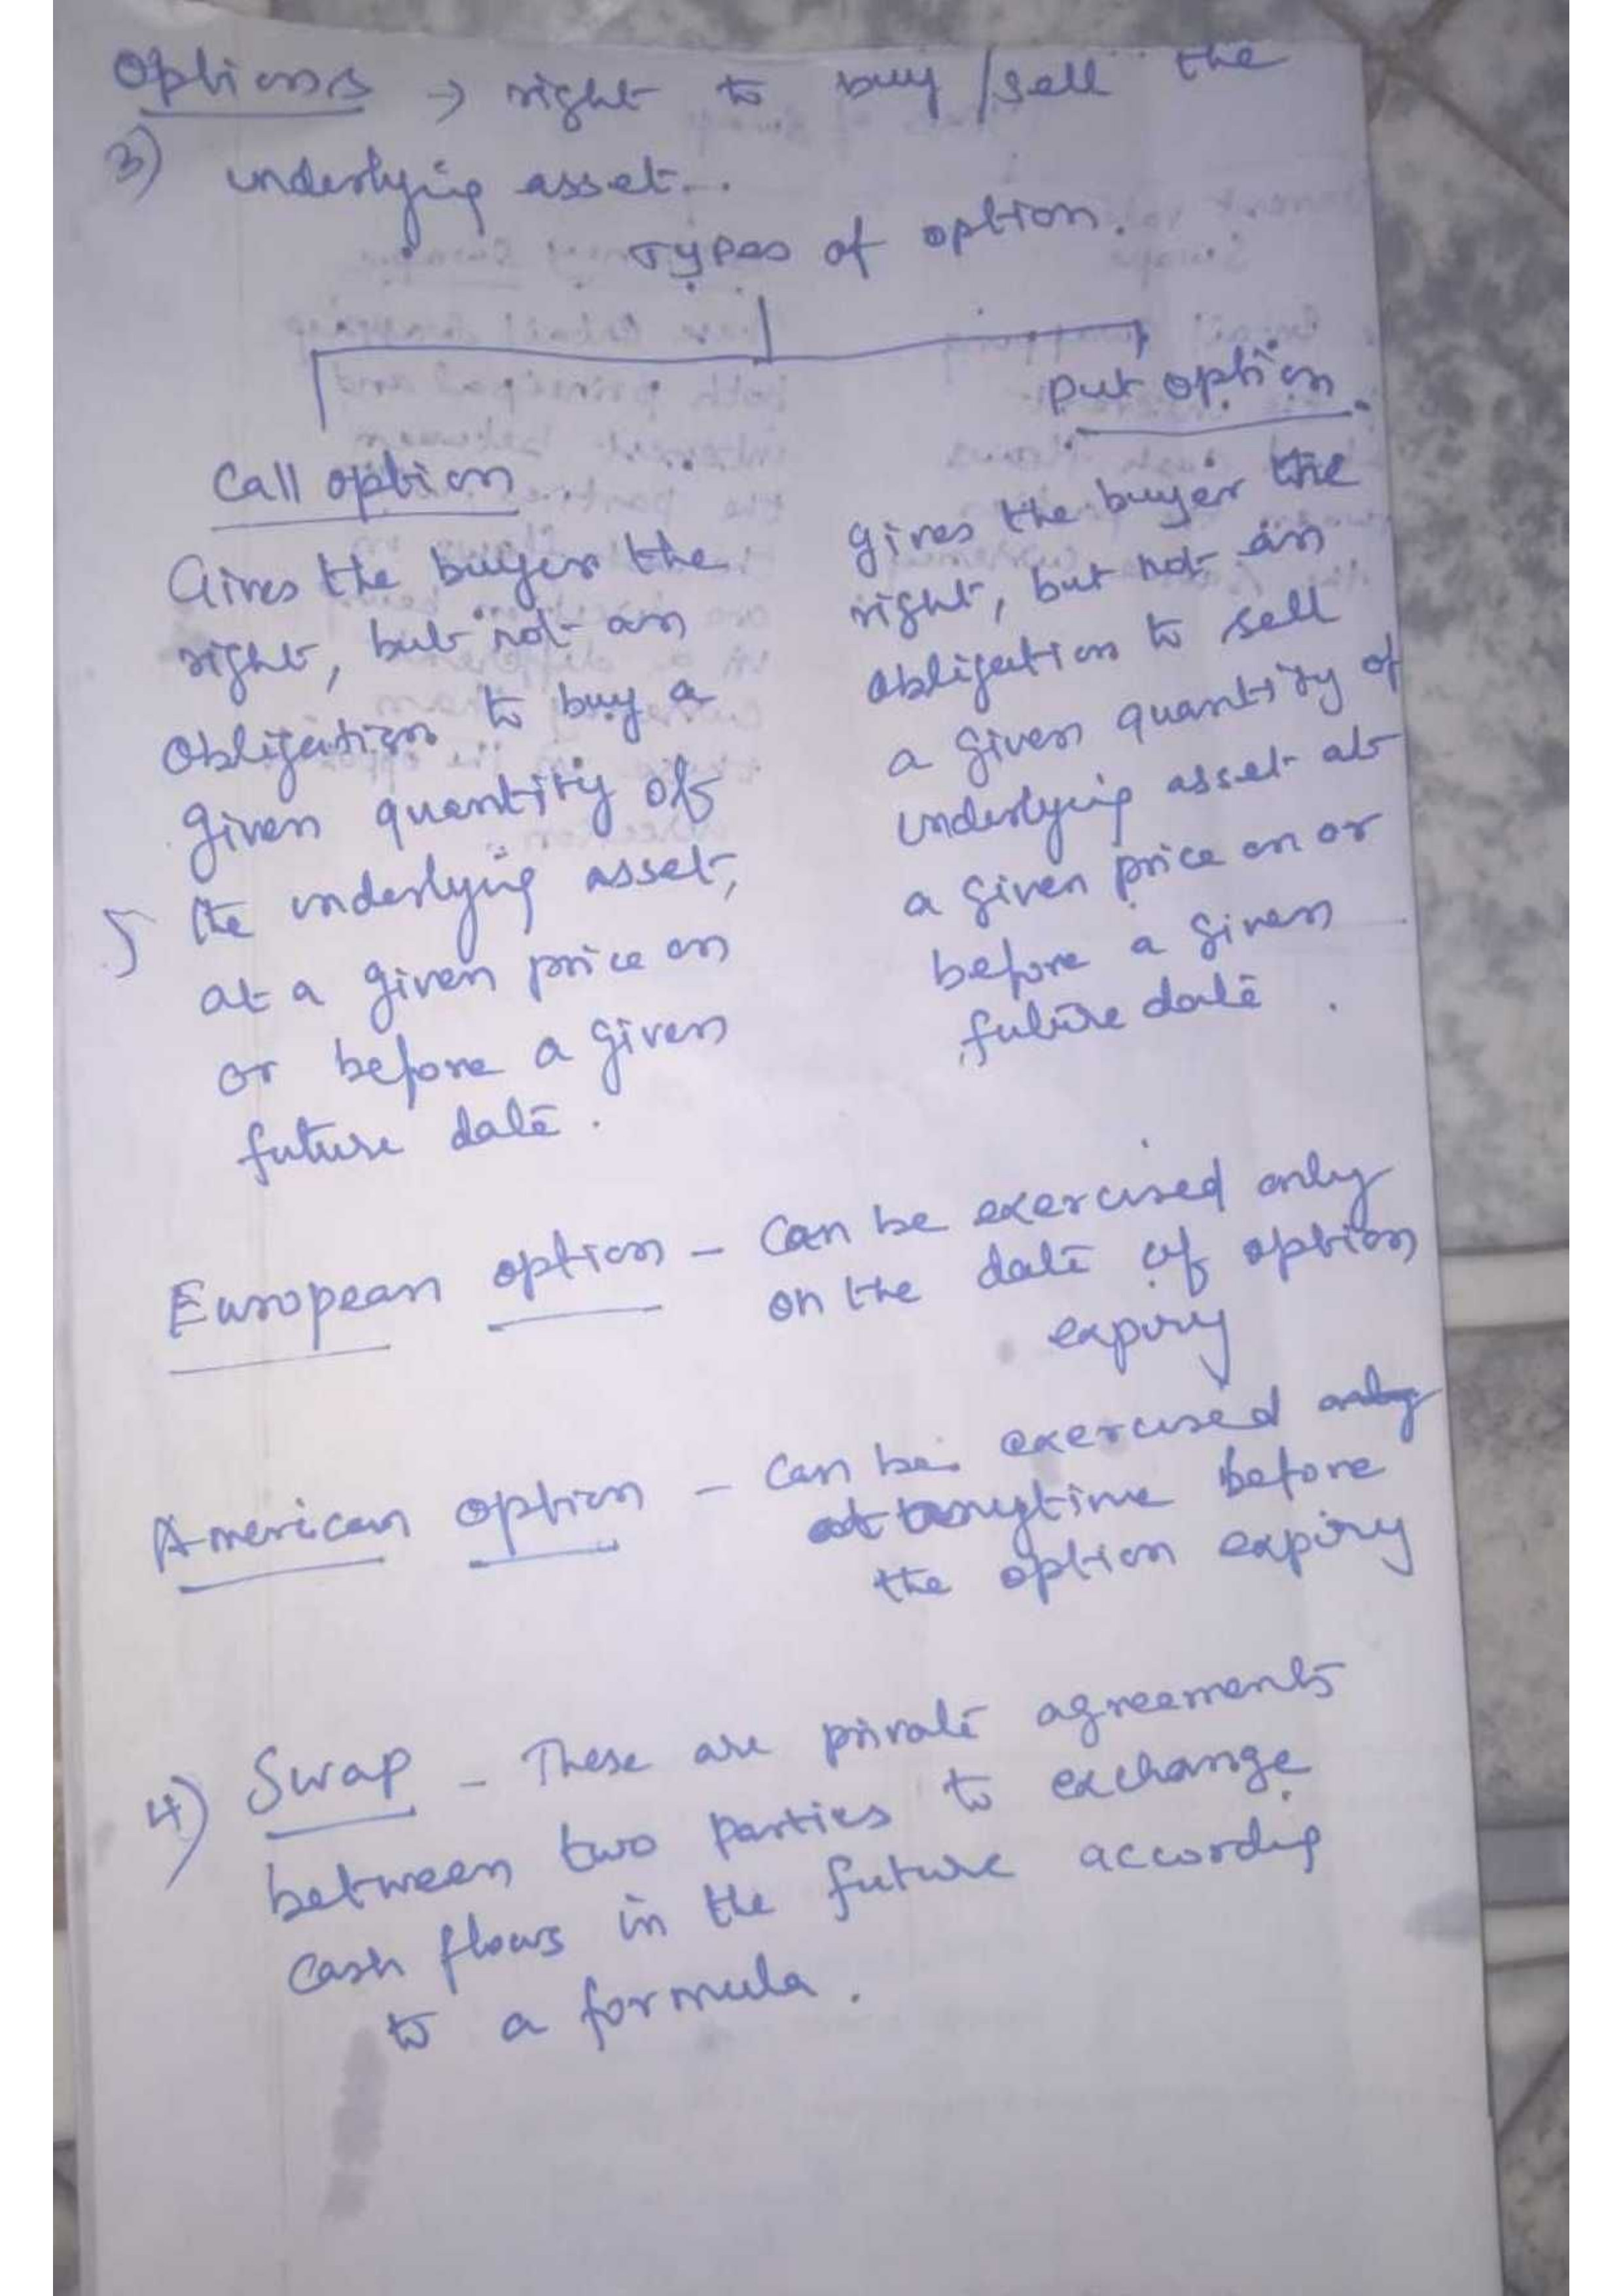 Options → right to buy/sell the
3) underlying asset.
Types of option.
Call option
Gives the buyer the
right, but not an
obligation to buy a
given quantity of
the underlying asset,
at a given price on
or before a given
future date.
Put option
gives the buyer the
right, but not an
obligation to sell
a given quantity of
underlying asset at
a given price on or
before a given
future date.
European option - Can be exercised only
on the date of option
expiry
American option - Can be exercised only
anytime before
the option expiry
4) Swap - These are private agreements
between two parties to exchange
cash flows in the future according
to a formula.